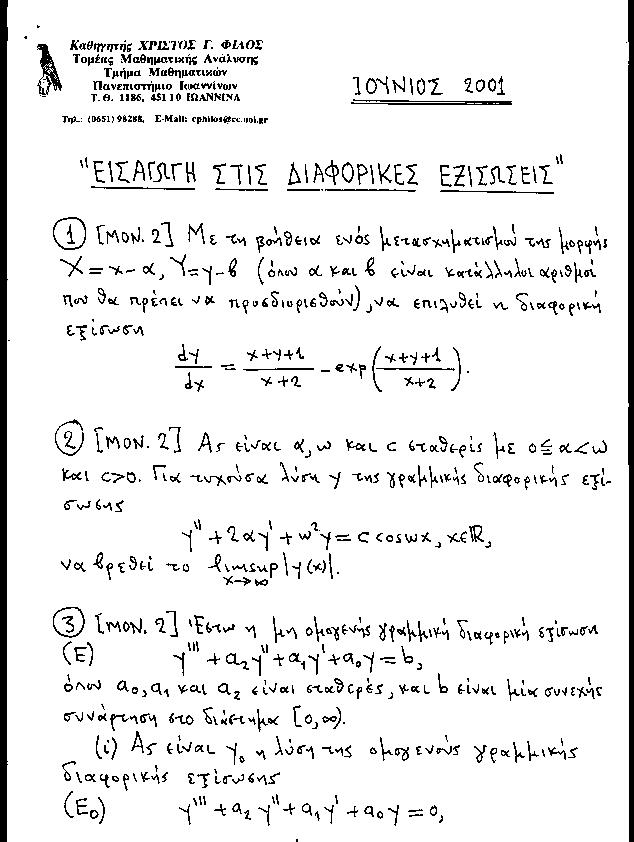 Καθηγητής ΧΡΙΣΤΟΣ Γ. ΦΙΛΟΣ
Τομέας Μαθηματικής Ανάλυσης
Τμήμα Μαθηματικών
Πανεπιστήμιο Ιωαννίνων
Τ. Θ. 1186, 451 10 ΙΩΑΝΝΙΝΑ
Τηλ.: (0651) 98288, E-Mail: cphilos@cc.uoi.gr
ΙΟΥΝΙΟΣ 2001
"ΕΙΣΑΓΩΓΗ ΣΤΙΣ ΔΙΑΦΟΡΙΚΕΣ ΕΞΙΣΩΣΕΙΣ"
① [ΜΟΝ. 2] Με τη βοήθεια ενός μετασχηματισμού της μορφής
X = x-α, Y = y-β (όπου α και β είναι κατάλληλοι αριθμοί
που θα πρέπει να προσδιορισθούν), να επιλυθεί η διαφορική
εξίσωση
dy/dx = (x+y+1)/(x+2) - exp((x+y+1)/(x+2)).
② [ΜΟΝ. 2] Ας είναι α, ω και c σταθερές με 0≤α<ω
και c>0. Για τυχούσα λύση y της γραμμικής διαφορικής εξί-
σωσης
y'' + 2αy' + ω²y = c cosωx, x∈ℝ,
να βρεθεί το limsup x→∞ |y(x)|.
③ [ΜΟΝ. 2] Έστω η μη ομογενής γραμμική διαφορική εξίσωση
(E) y''' + a₂y'' + a₁y' + a₀y = b,
όπου a₀, a₁ και a₂ είναι σταθερές, και b είναι μία συνεχής
συνάρτηση στο διάστημα [0,∞).
(i) Ας είναι y₀ η λύση της ομογενούς γραμμικής
διαφορικής εξίσωσης
(E₀) y''' + a₂y'' + a₁y' + a₀y = 0,